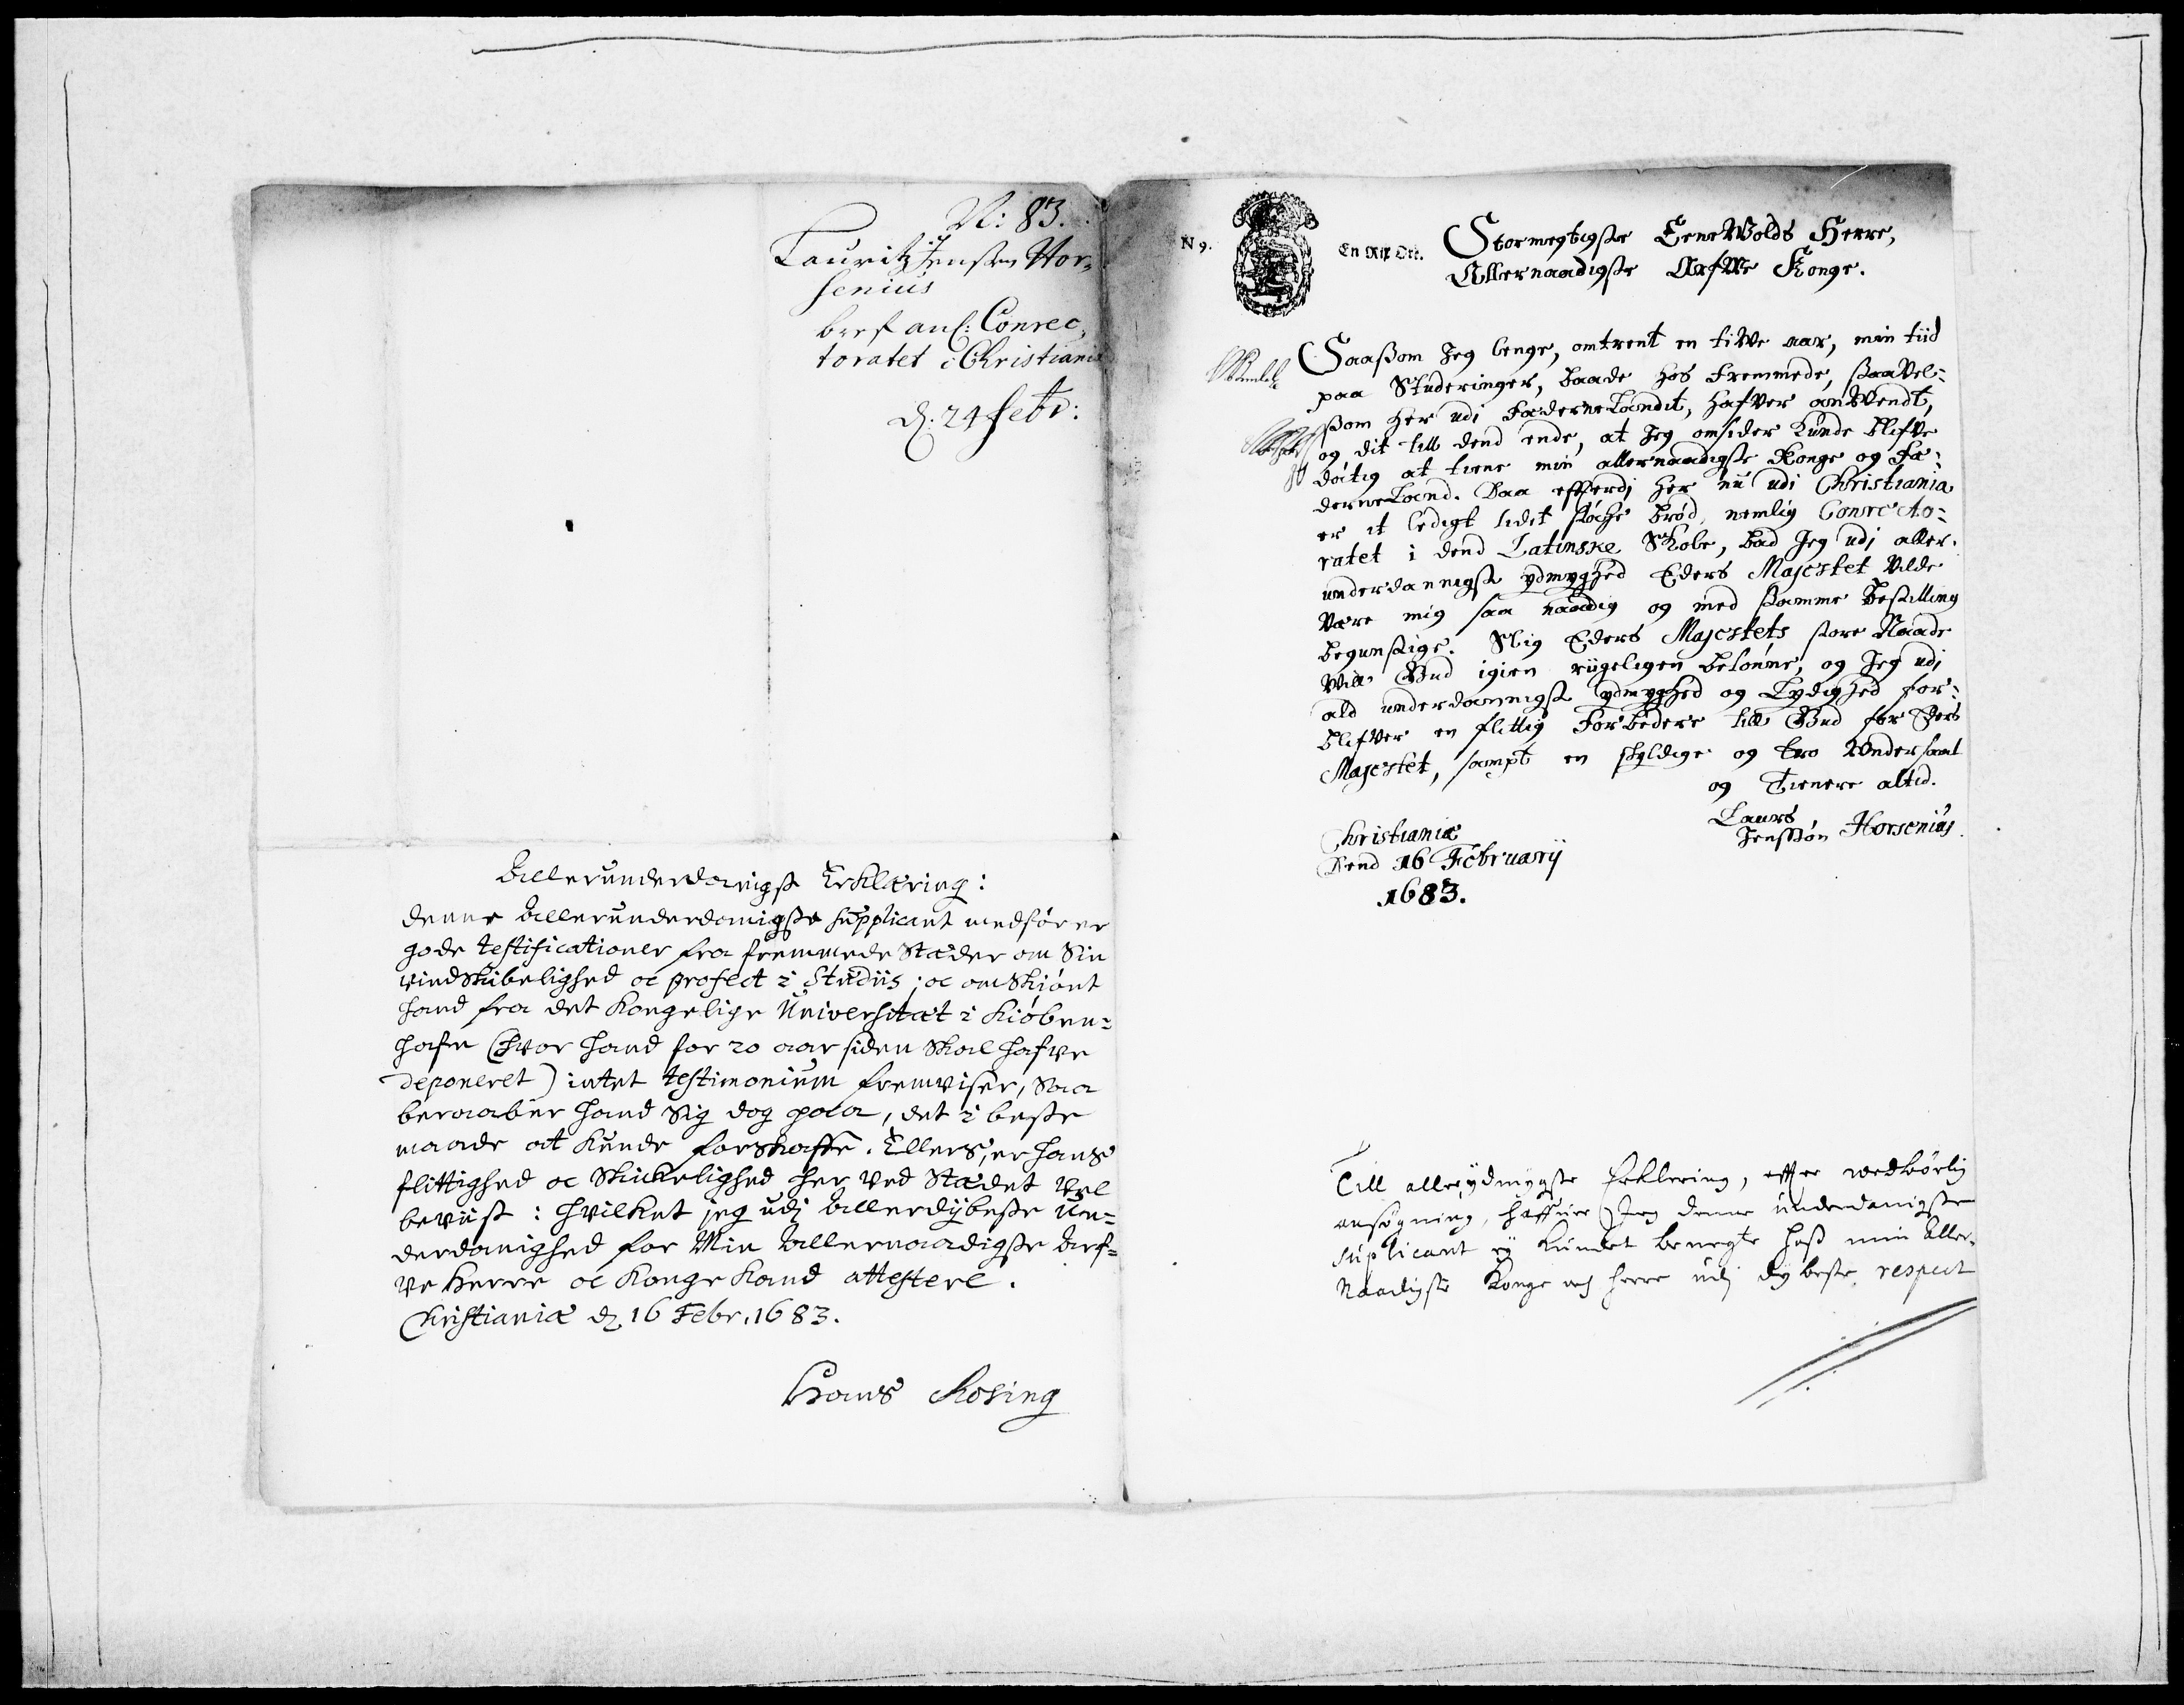 N: 83.
Lauritz Jensen Hor-
senius
beraf anl: Conrec-
toratet i Christiania
d. 24 febr:
Allerunderdanigst Erklæring:
Denne Allerunderdanigste supplicant medfører
gode testificationer fra fremmede Stæder om Sin
vindskibelighed oc profect i Studiis; oc om skiønt
hand fra det Kongelige Universitæt i Kiøben-
hafn (hvor hand for 20 aar siden skal hafve
deponeret) intet testimonium fremviser, saa
beraaber hand sig dog paa, det i beste
maade at kunde forskaffe. Ellers, er hans
flittighed oc Skickelighed her ved Stædet vel
beviist: hvilket jeg udj Allerdybeste Un-
derdanighed for Min Allernaadigste Arf-
ve Herre oc Konge kand attestere.
Christianiæ d. 16 Febr. 1683.
Hans Rosing
N 9.
En Rix Ort.
Stormegtigste EeneVolds Herre,
Allernaadigste ArfVe Konge.
Saasom Jeg lenge, omtrent en tiVe aar, min tiid
paa Studeringer, baade hos Fremmede, saavel-
som her udi FæderneLandit, hafVer anVendt,
og dit till dend ende, at Jeg omsider kunde blifve
døctig at tiene min allernaadigste Konge og Fæ-
derneLand. Daa effterdj her nu udi Christiania
er it ledigt lidit støche brød, nemlig Conrecto-
ratet i dend Latinske Skole, bad Jeg udj aller-
underdannigst ydmyghed Eders Majestet Vilde
være mig saa naadig og med samme bestilling
begunstige. Slig Eders Majestets store Naade
Vill Gud igien riigeligen belønne, og Jeg udj
ald underdannigst ydmyghed og Lydighed for-
blifVer en flittig Forbedere till Gud for Ders
Majestet, sampt en skyldige og tro Undersaat
og Tienere altid.
Laurs
Jenssøn Horsenius.
Christianiæ
Dend 16 February
1683.
Till allerydmygste Erklering, effter wedbørlig
ansøgning, haffuer Jeg denne underdanigste
suplicant ey kundet benegte hoss min Aller-
Naadigste Konge och Herre udj dybeste respect